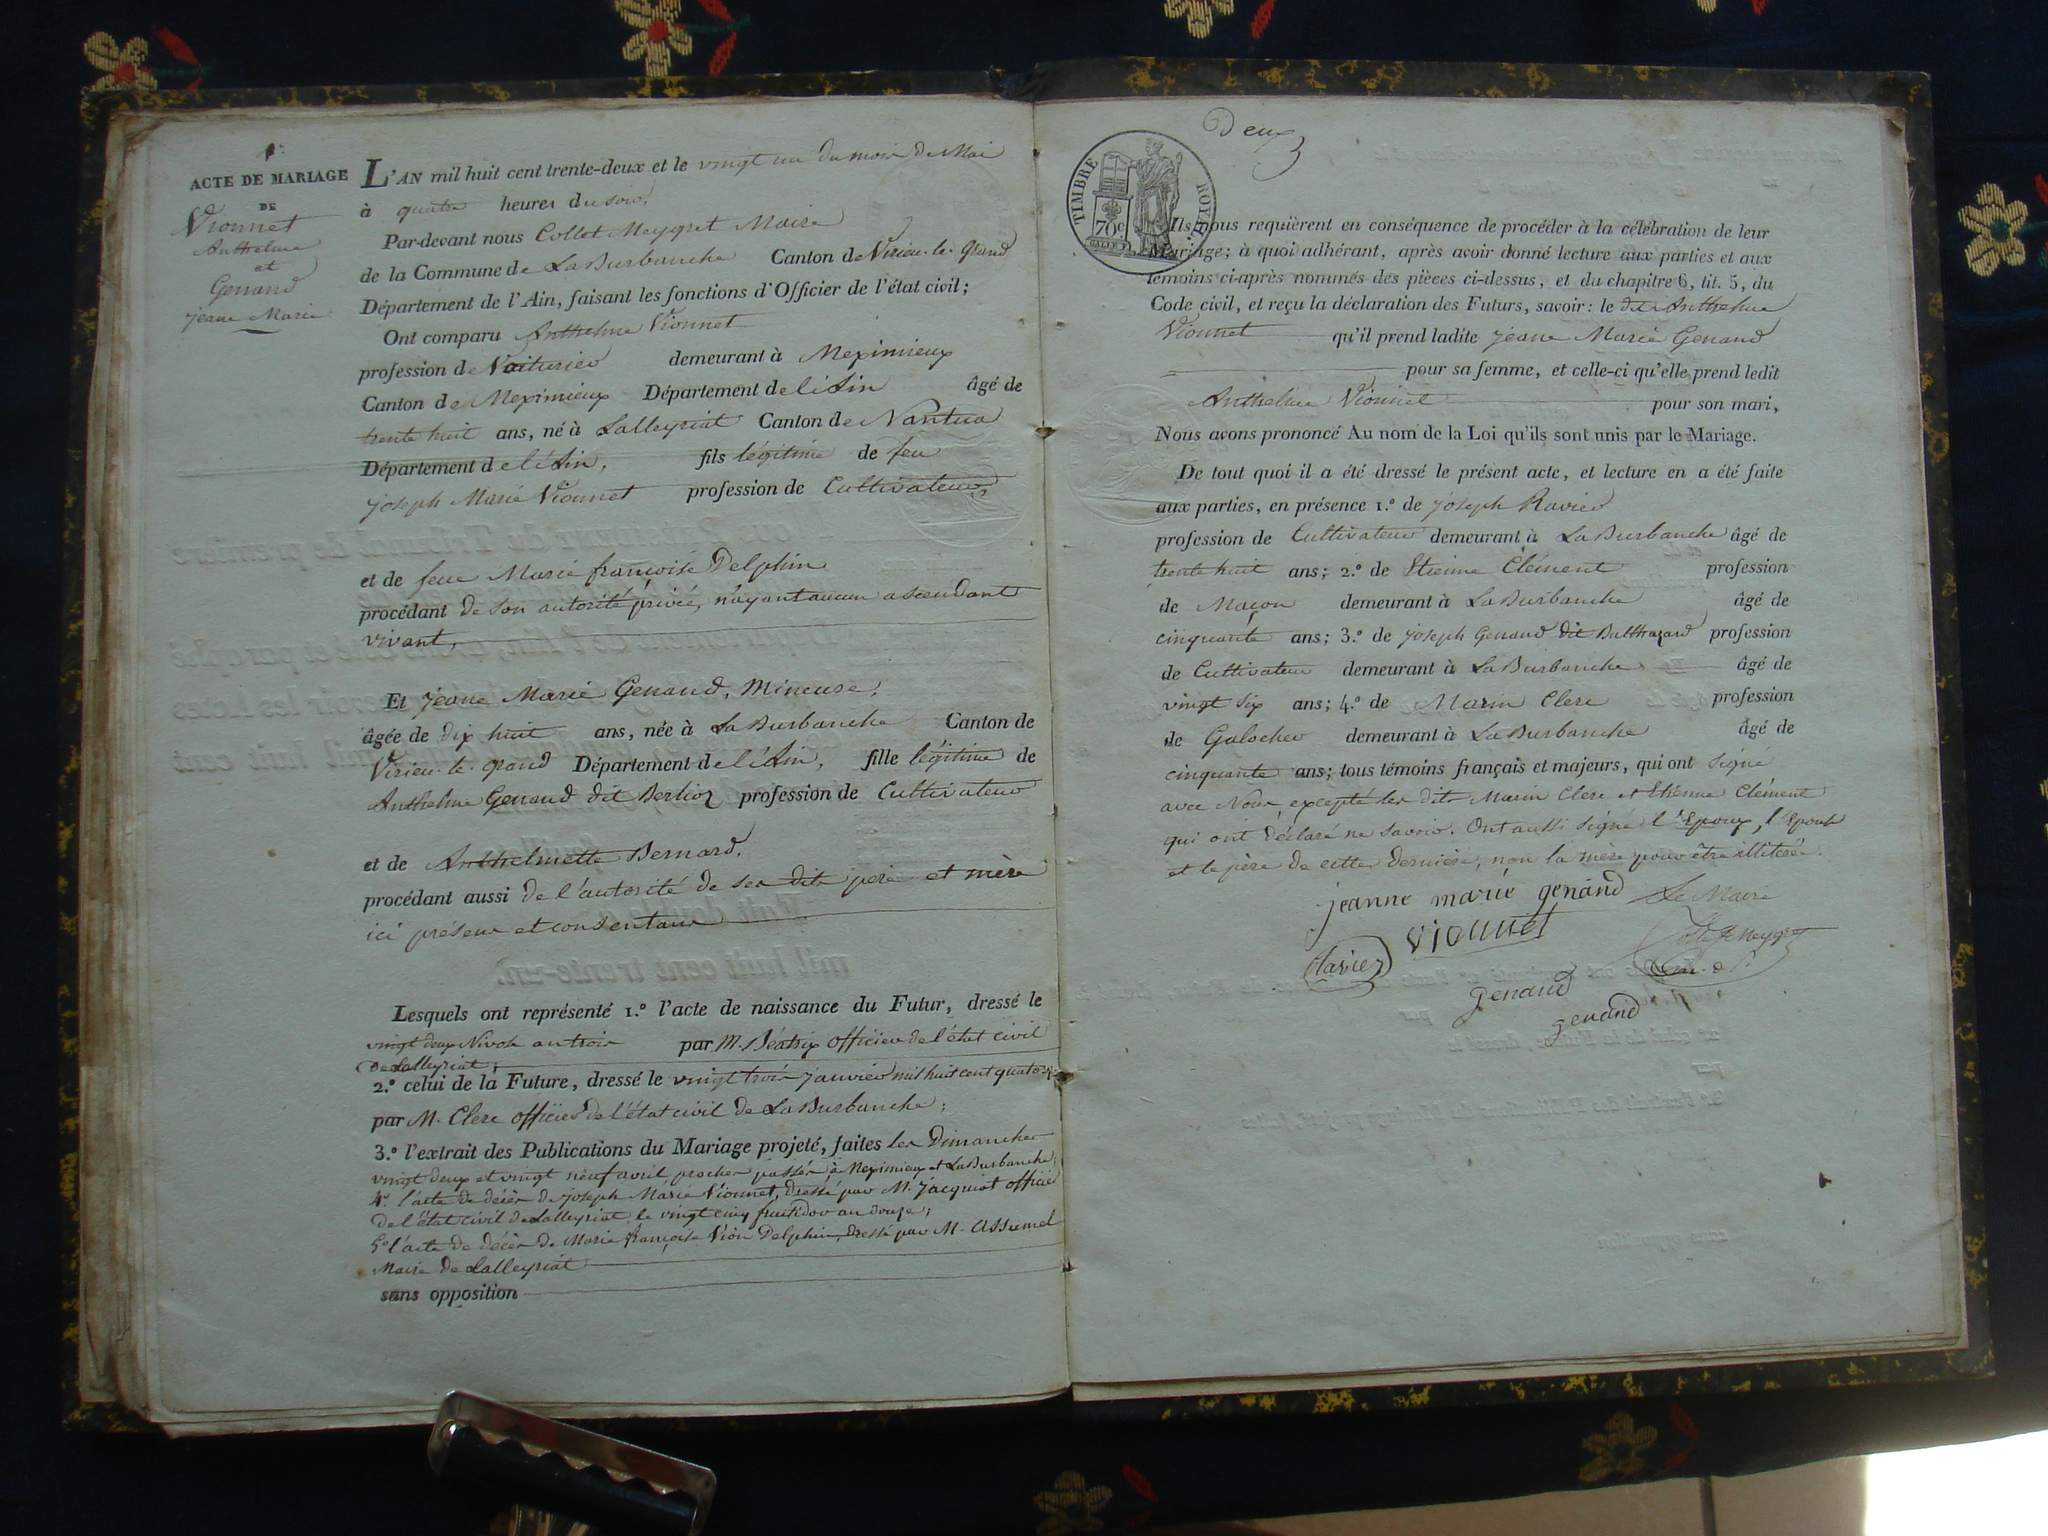 ACTE DE MARIAGE
DE
Vionnet
Anthelme
et
Genand
Jeane Marie
L'AN mil huit cent trente-deux et le vingt un du mois de Mai
à quatre heures du soir,
Par-devant nous Collet Meygret Maire
de la Commune de La Burbanche Canton de Virieu-le-grand
Département de l'Ain, faisant les fonctions d'Officier de l'état civil;
Ont comparu Anthelme Vionnet
profession de Voiturier demeurant à Meximieux
Canton de Meximieux Département de l'Ain âgé de
trente huit ans, né à Lalleyriat Canton de Nantua
Département de l'Ain, fils légitime de feu
Joseph Marie Vionnet profession de Cultivateur,
et de feue Marie françoise Delphin
procédant de son autorité privée, n'ayant aucun ascendant
vivant,
Et Jeane Marie Genand, Mineuse,
âgée de dix huit ans, née à La Burbanche Canton de
Virieu-le-grand Département de l'Ain, fille légitime de
Anthelme Genand dit Berlioz profession de Cultivateur
et de Anthelmette Bernard,
procédant aussi de l'autorité de ses dits père et mère
ici présens et consentans
Lesquels ont représenté 1.º l'acte de naissance du Futur, dressé le
vingt deux Nivose an trois par M. Béatrix officier de l'état civil
de Lalleyriat;
2.º celui de la Future, dressé le vingt trois janvier mil huit cent quatorze
par M. Clerc officier de l'état civil de La Burbanche;
3.º l'extrait des Publications du Mariage projeté, faites les Dimanches
vingt deux et vingt neuf avril proches passés, à Meximieux et La Burbanche;
4º l'acte de décès de Joseph Marie Vionnet, dressé par M. Jacquiot officier
de l'état civil de Lalleyriat le vingt cinq fructidor an douze;
5º l'acte de décès de Marie françoise Vion Delphin, dressé par M. Assumel
Maire de Lalleyriat
sans opposition
Deux
TIMBRE ROYAL
70 c
Ils nous requièrent en conséquence de procéder à la célébration de leur
Mariage; à quoi adhérant, après avoir donné lecture aux parties et aux
témoins ci-après nommés des pièces ci-dessus, et du chapitre 6, tit. 5, du
Code civil, et reçu la déclaration des Futurs, savoir: le dit Anthelme
Vionnet qu'il prend ladite Jeane Marie Genand
pour sa femme, et celle-ci qu'elle prend ledit
Anthelme Vionnet pour son mari,
Nous avons prononcé Au nom de la Loi qu'ils sont unis par le Mariage.
De tout quoi il a été dressé le présent acte, et lecture en a été faite
aux parties, en présence 1.º de Joseph Ravier
profession de Cultivateur demeurant à La Burbanche âgé de
trente huit ans; 2.º de Etienne Clément profession
de Maçon demeurant à La Burbanche âgé de
cinquante ans; 3.º de Joseph Genand dit Balthazard profession
de Cultivateur demeurant à La Burbanche âgé de
vingt six ans; 4.º de Marin Clerc profession
de Galocher demeurant à La Burbanche âgé de
cinquante ans; tous témoins français et majeurs, qui ont signé
avec Nous, excepté les dits Marin Clerc et Etienne Clément
qui ont déclaré ne savoir. Ont aussi signé l'Epoux, l'Epouse
et le père de cette dernière, non la mère pour être illitérée.
jeanne marie genand Le Maire
Vionnet
Ravier Collet Meygret
genand
genand